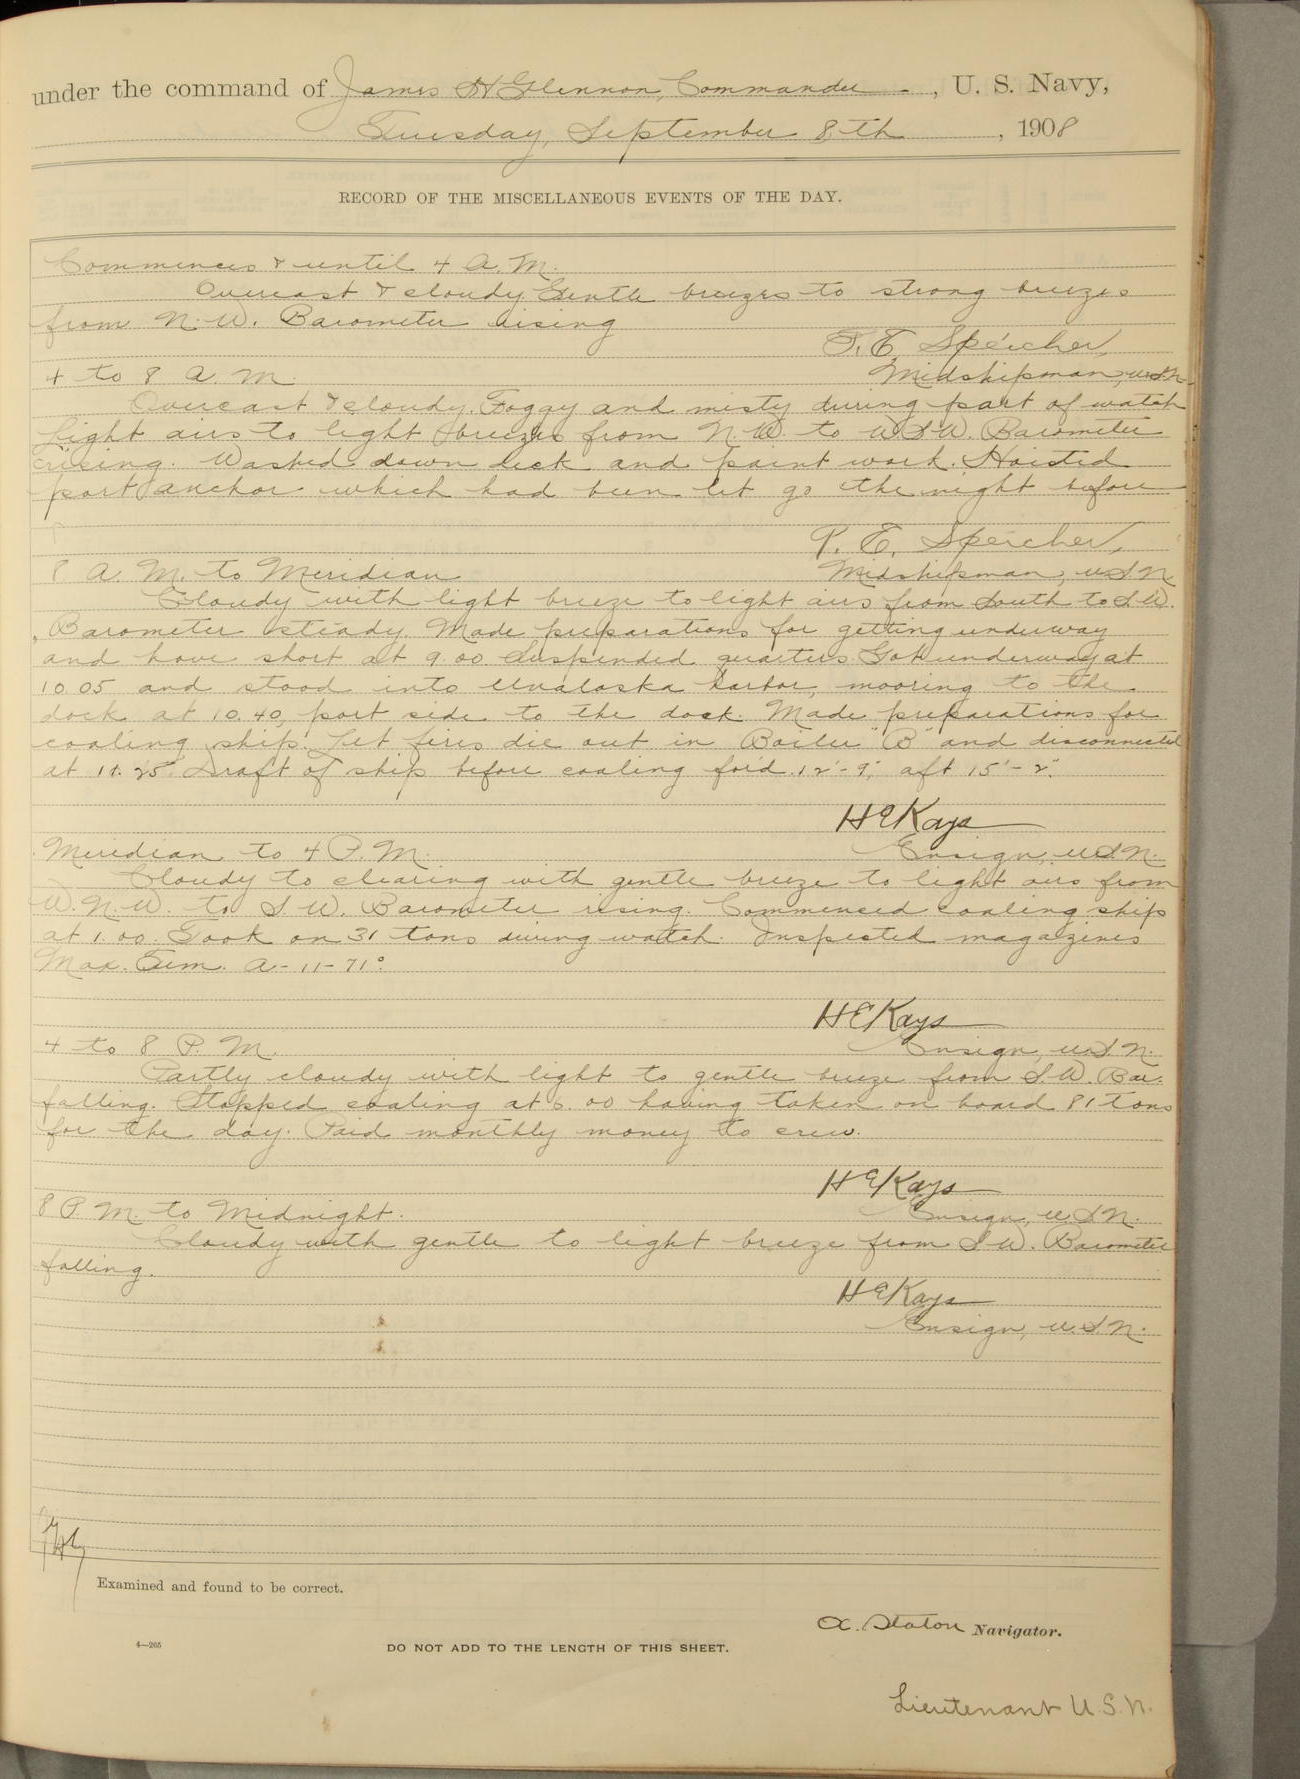 under the command of James H Glennon, Commander, U. S. Navy,
Tuesday, September 8th, 1908
RECORD OF THE MISCELLANEOUS EVENTS OF THE DAY.
Commences & until 4 A. M.
Overcast & cloudy Gentle breezes to strong breezes
from N. W. Barometer rising
T. E. Speicher,
4 to 8 A. M.
Midshipman, U.S.N.
Overcast & cloudy. Foggy and misty during part of watch
Light airs to light breezes from N.W. to WSW. Barometer
rising. Washed down deck and paint work. Hoisted
port anchor which had been let go the night before
P. E. Speicher,
8 A. M. to Meridian
Midshipman, U.S.N.
Cloudy with light breeze to light airs from South to S.W.
Barometer steady. Made preparations for getting underway
and hove short at 9.00 Suspended quarters. Got underway at
10 05 and stood into Unalaska harbor, mooring to the
dock at 10.40, port side to the dock. Made preparations for
coaling ship. Let fires die out in Boiler "B" and disconnected
at 11.25. Draft of ship before coaling for'd. 12'-9", aft 15'-2".
H E Kays
Meridian to 4 P. M.
Ensign, U.S.N.
Cloudy to clearing with gentle breeze to light airs from
W. N. W. to S. W. Barometer rising. Commenced coaling ship
at 1.00. Took on 31 tons during watch. Inspected magazines
Max. Tem. A-11-71°.
H E Kays
4 to 8 P. M.
Ensign, U.S.N.
Partly cloudy with light to gentle breeze from S.W. Bar.
falling. Stopped coaling at 6.00 having taken on board 81 tons
for the day. Paid monthly money to crew.
H E Kays
8 P. M. to Midnight.
Ensign, U.S.N.
Cloudy with gentle to light breeze from S.W. Barometer
falling.
H E Kays
Ensign, U.S.N.
Examined and found to be correct.
A. Staton Navigator.
4—265
DO NOT ADD TO THE LENGTH OF THIS SHEET.
Lieutenant U.S.N.